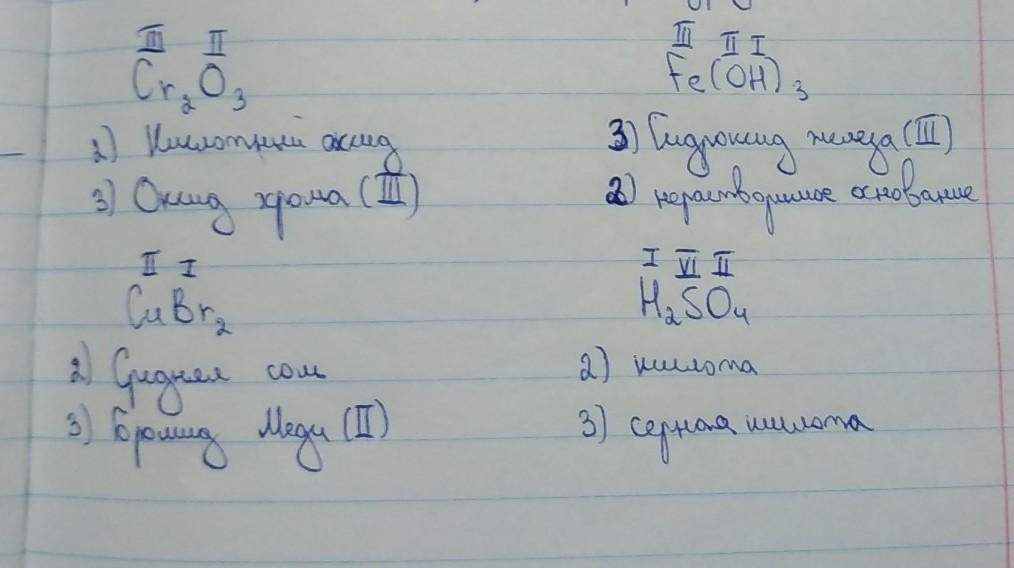 III II
Cr₂O₃
2) Кислотный оксид
3) Оксид хрома (III)
III II I
Fe(OH)₃
3) Гидроксид железа (III)
2) нерастворимое основание
II I
CuBr₂
2) Средняя соль
3) Бромид Меди (II)
I VI II
H₂SO₄
2) кислота
3) серная кислота